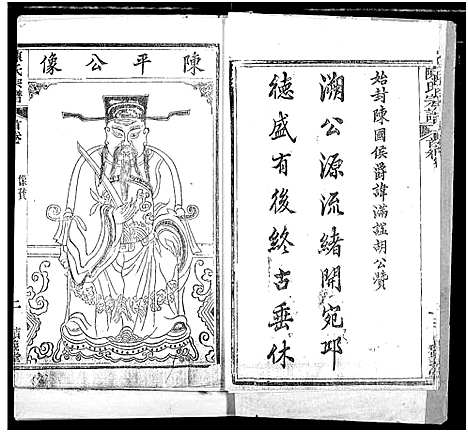 始封陳國侯爵諱滿謚胡公贊
溯公源流緒開宛邱
德盛有後終古垂休
陳平公像
陳氏宗譜
首卷
像賛